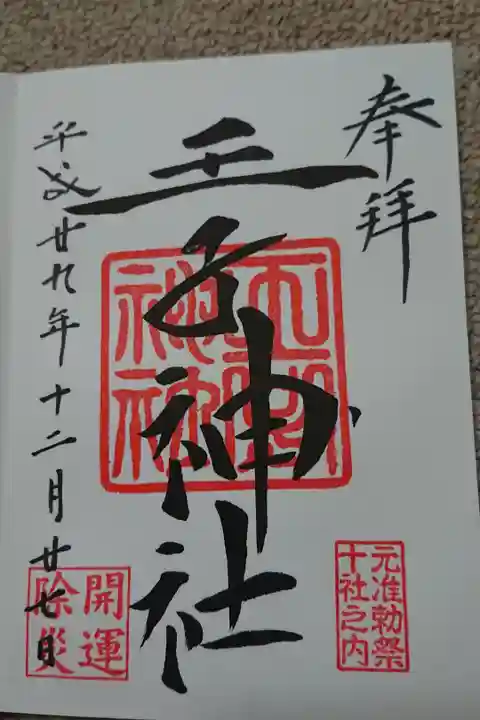 奉拝
王子神社
平成廿九年十二月廿七日
元准勅祭
十社之内
開運
除災